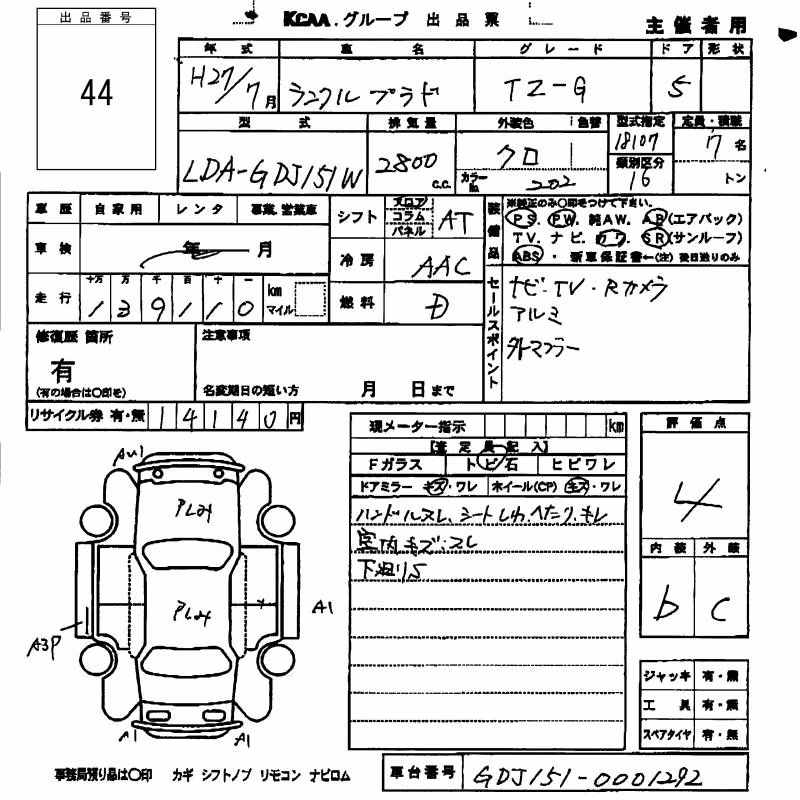 出品番号
44
KCAA.グループ 出品票
主催者用
年式 車名 グレード ドア 形状
H27/7月 ランクル プラド TZ-G 5
型式 排気量 外装色 色替 型式指定 定員・積載
LDA-GDJ151W 2800 c.c. クロ 18107 7名
カラーNo. 202 類別区分 16 トン
車歴 自家用 レンタ 事業.営業車
車検 年 月
走行 十万 万 千 百 十 一 km マイル
139110
シフト フロア コラム パネル AT
冷房 AAC
燃料 D
装備品 ※純正のみ○印をつけて下さい。
PS. PW. 純AW. AB(エアバック)
TV. ナビ. カワ. SR(サンルーフ)
ABS・新車保証書←(注)後日送りのみ
セールスポイント
ナビ・TV・Rカメラ
アルミ
外マフラー
修復歴 箇所
有
(有の場合は○印を)
注意事項
名変期日の短い方 月 日まで
リサイクル券 有・無 14140円
現メーター指示 km
【査定員記入】
Fガラス トビ石 ヒビワレ
ドアミラー キズ・ワレ ホイール(CP) キズ・ワレ
ハンドルスレ、シートしわ、へたり、キレ
室内キズ・スレ
下廻りS
評価点
4
内装 外装
b c
ジャッキ 有・無
工具 有・無
スペアタイヤ 有・無
A1
A3P
A1
A1
事務局預り品は○印 カギ シフトノブ リモコン ナビロム
車台番号 GDJ151-0001292